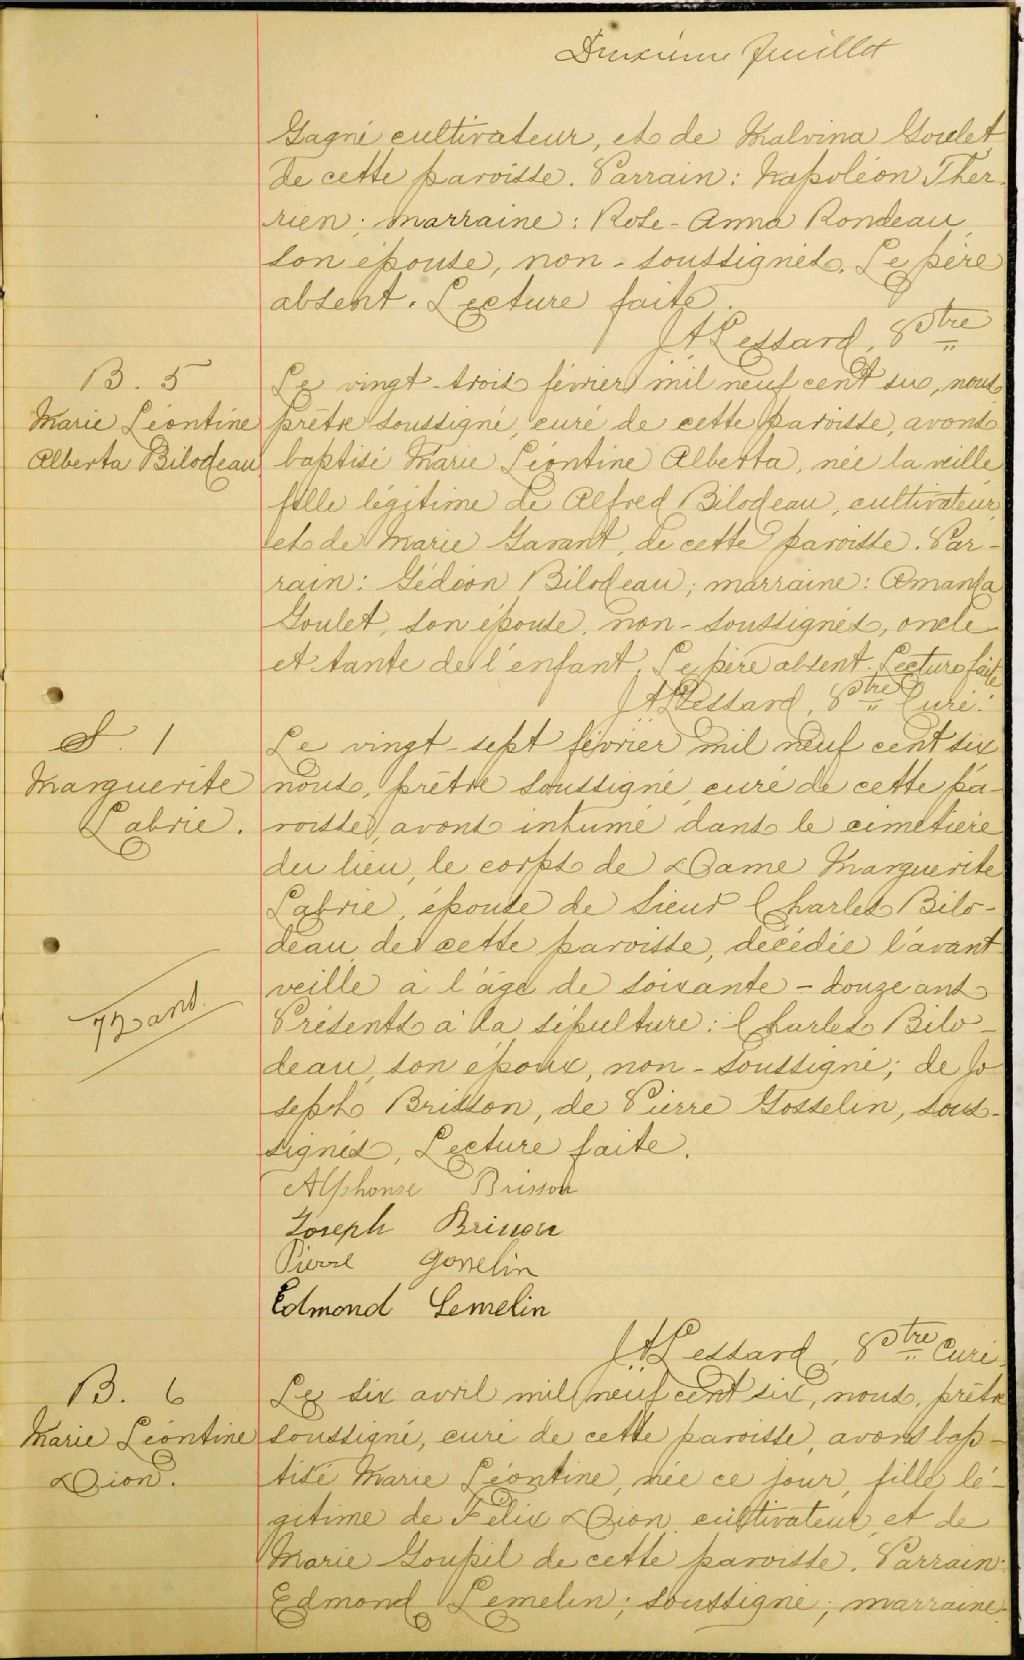 Deuxième feuillet
Gagné cultivateur, et de Malvina Goulet,
de cette paroisse. Parrain: Napoléon Ther-
rien; marraine: Rose-Anna Rondeau,
son épouse, non-soussignés. Le père
absent. Lecture faite.
JALessard, Ptre
B. 5
Marie Léontine
Alberta Bilodeau
Le vingt-trois février mil neuf cent six, nous
prêtre soussigné, curé de cette paroisse, avons
baptisé Marie Léontine Alberta, née la veille
fille légitime de Alfred Bilodeau, cultivateur,
et de Marie Gavant, de cette paroisse. Par-
rain: Gédéon Bilodeau; marraine: Amanda
Goulet, son épouse, non-soussignés, oncle
et tante de l'enfant. Le père absent. Lecture faite
JALessard, Ptre Curé.
S. 1
Marguerite
Labrie.
72 ans.
Le vingt-sept février mil neuf cent six
nous, prêtre soussigné, curé de cette pa-
roisse, avons inhumé dans le cimetière
du lieu, le corps de Dame Marguerite
Labrie, épouse de Sieur Charles Bilo-
deau, de cette paroisse, décédée l'avant
veille à l'âge de soixante-douze ans
Présents à la sépulture: Charles Bilo-
deau, son époux, non-soussigné; de Jo
seph Brisson, de Pierre Gosselin, sous-
signés, Lecture faite.
Alphonse Brisson
Joseph Brisson
Pierre Gosselin
Edmond Lemelin
JALessard, Ptre Curé.
B. 6
Marie Léontine
Dion.
Le six avril mil neuf cent six, nous, prêtre
soussigné, curé de cette paroisse, avons bap-
tisé Marie Léontine, née ce jour, fille lé-
gitime de Félix Dion, cultivateur, et de
Marie Goupil de cette paroisse. Parrain:
Edmond Lemelin; soussigné; marraine: